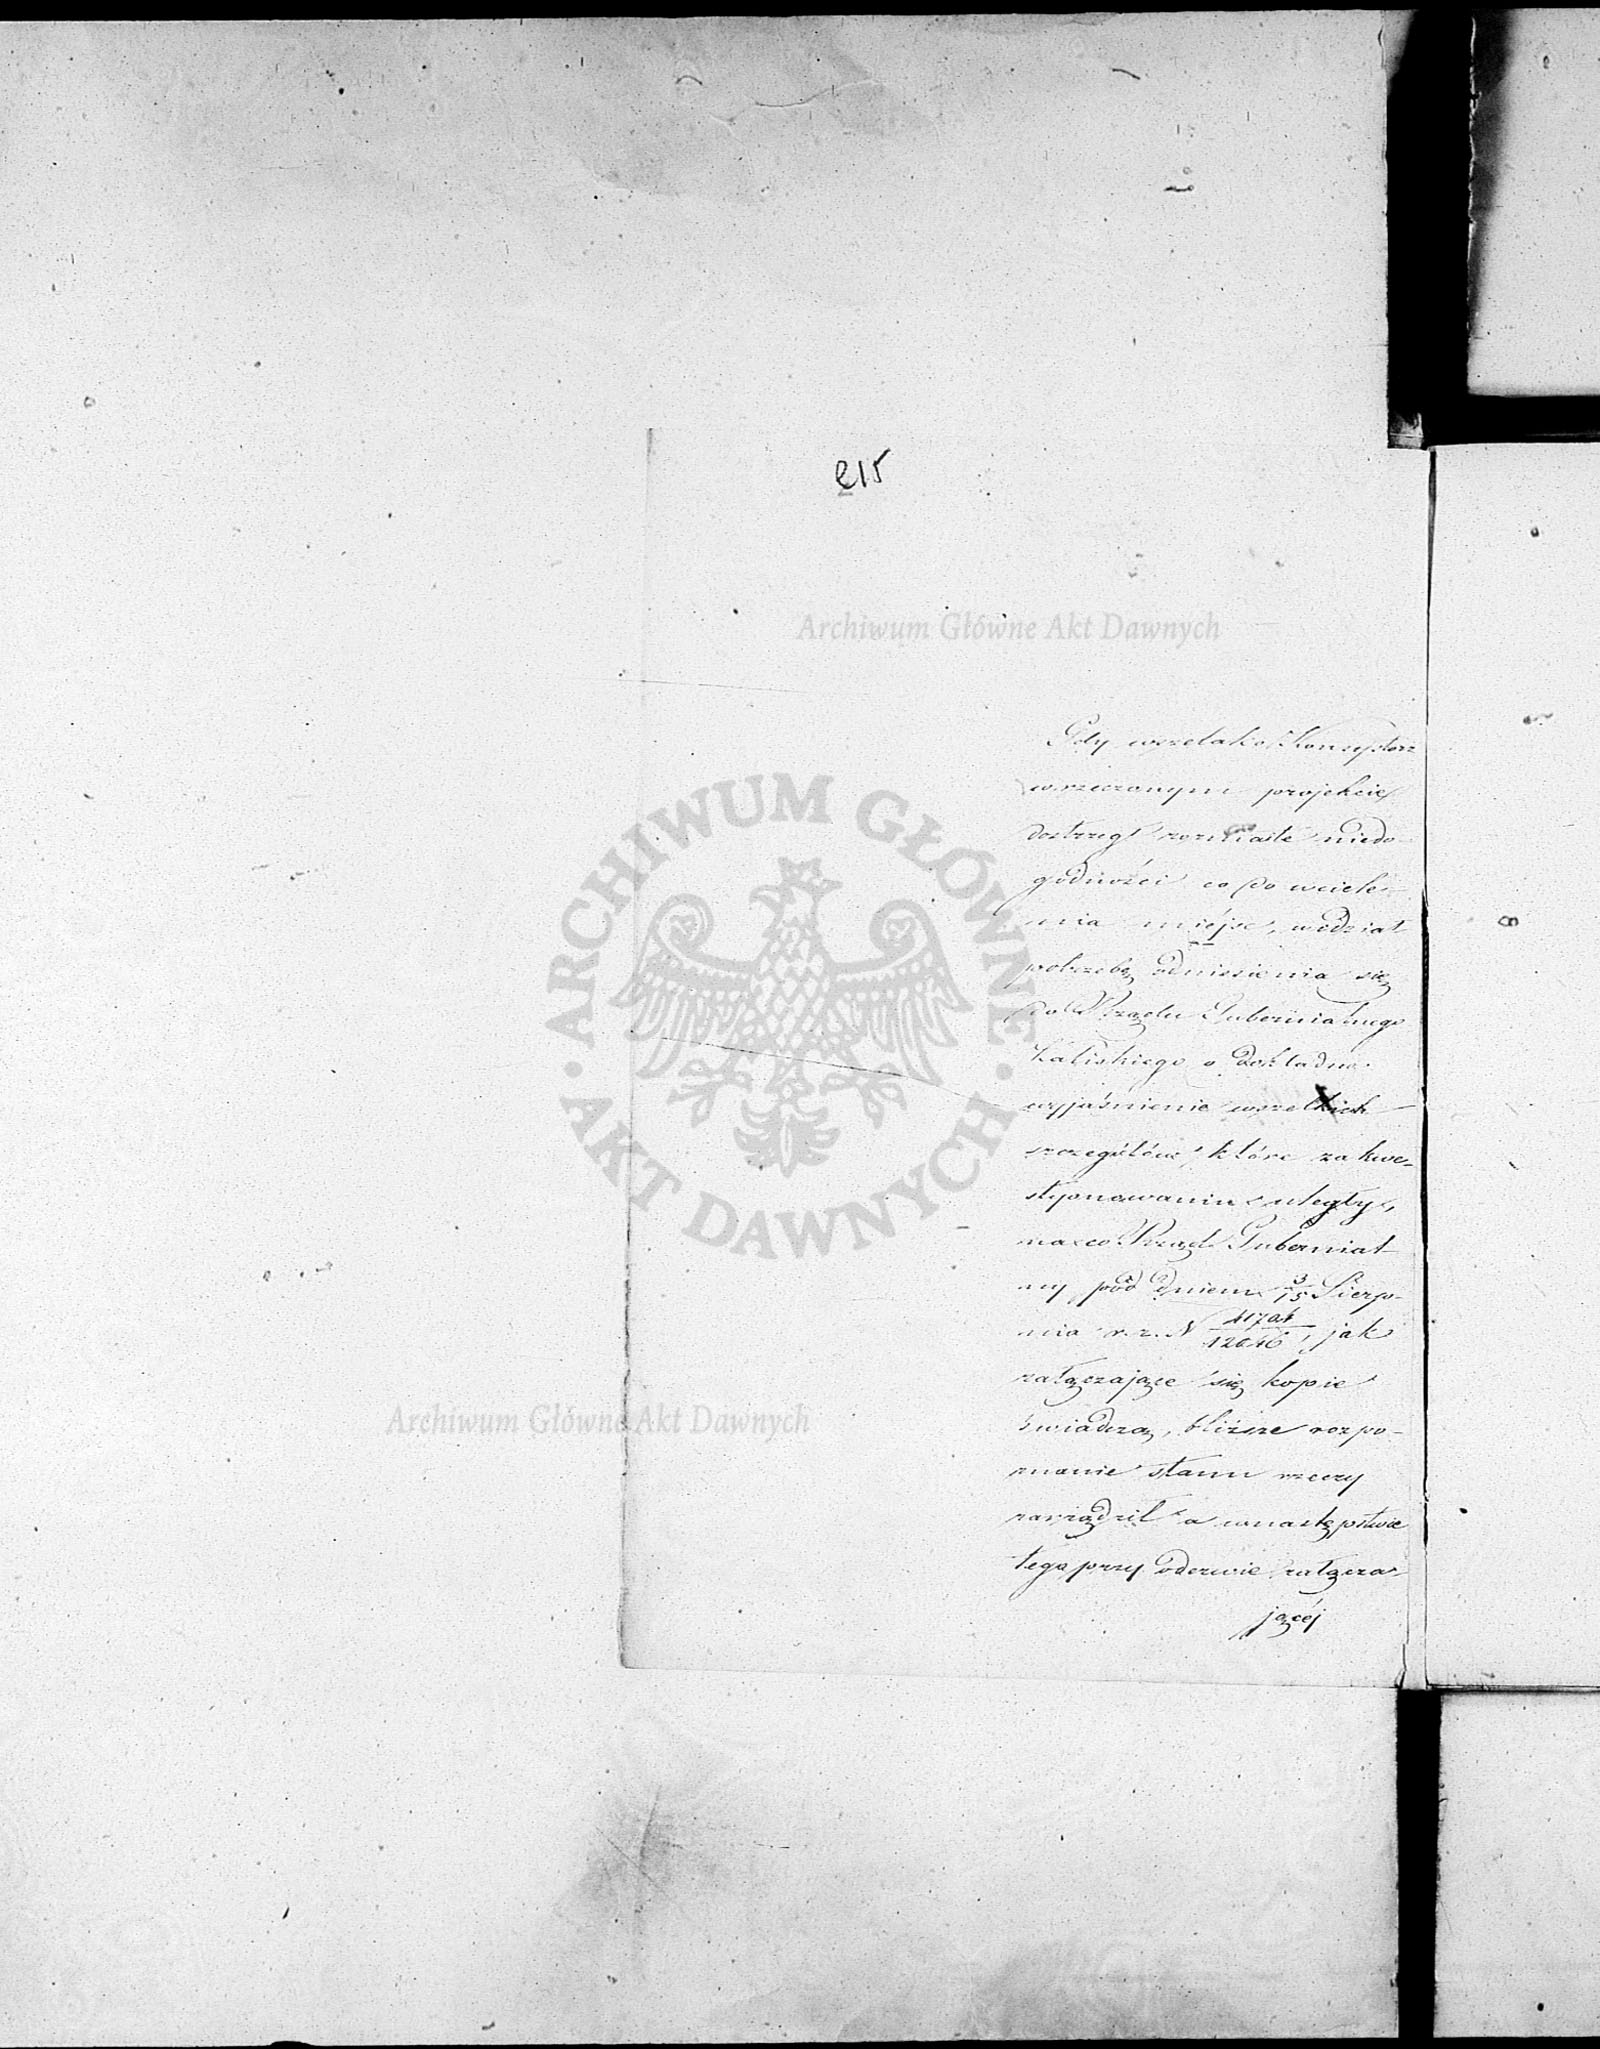 215
Archiwum Główne Akt Dawnych
Gdy wszelako Konsystorz
w rzeczonym projekcie
dostrzegł rozmaite niedo-
godności co do wciele-
nia miéjsc, widział
potrzebę odniesienia się
do Rządu Gubernialnego
Kaliskiego o dokładne
wyjaśnienie wszelkich
szczegółów, które zakwe-
styonowaniu uległy,
na co Rząd Gubernial-
ny pod dniem 3/15 Sierp-
nia r. z. N 41704/12646, jak
załączające się kopie
świadczą, bliższe rozpo-
znanie stanu rzeczy
zarządził a w następstwie
tego przy odezwie załącza-
jącéj
ARCHIWUM GŁÓWNE
AKT DAWNYCH
Archiwum Główne Akt Dawnych